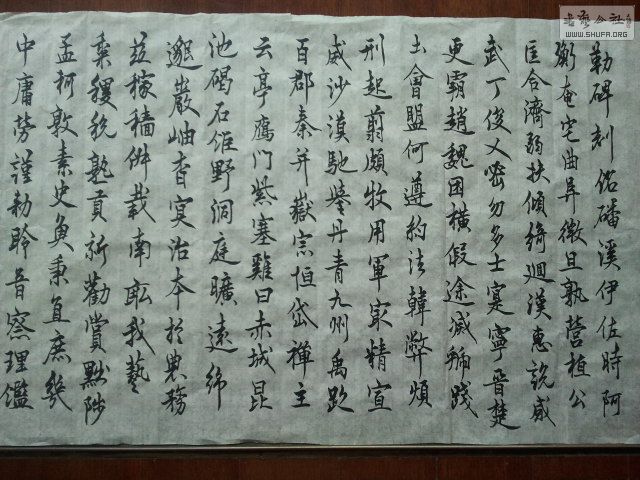 勒碑刻銘磻溪伊佐時阿
衡奄宅曲阜微旦孰營桓公
匡合濟弱扶傾綺迴漢惠說感
武丁俊乂密勿多士寔寧晉楚
更霸趙魏困橫假途滅虢踐
土會盟何遵約法韓弊煩
刑起翦頗牧用軍最精宣
威沙漠馳譽丹青九州禹跡
百郡秦并嶽宗恒岱禪主
云亭鴈門紫塞雞田赤城昆
池碣石鉅野洞庭曠遠綿
邈巖岫杳冥治本於農務
茲稼穡俶載南畝我藝
黍稷稅熟貢新勸賞黜陟
孟軻敦素史魚秉直庶幾
中庸勞謹勑聆音察理鑑
书艺公社
WWW.SHUFA.ORG